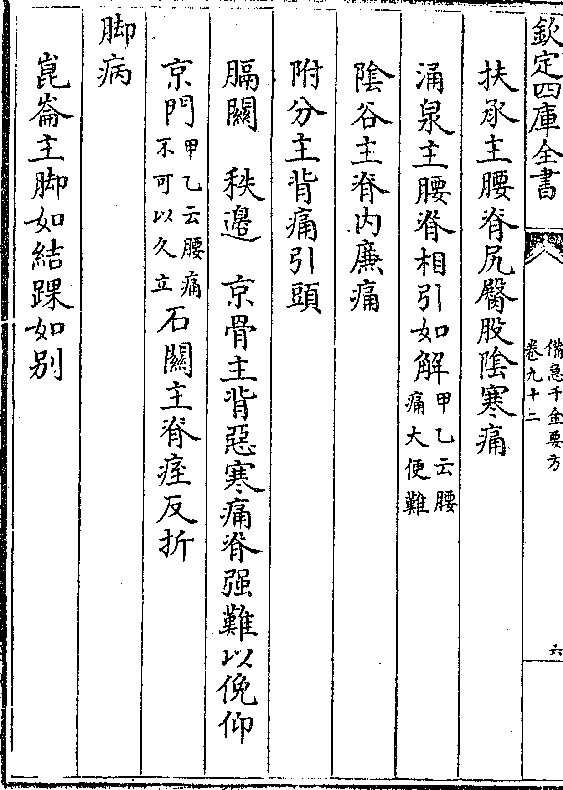 欽定四庫全書
備急千金要方
卷九十二
六
扶承主腰脊尻臀股陰寒痛
涌泉主腰脊相引如解甲乙云腰痛大便難
陰谷主脊内廉痛
附分主背痛引頭
膈關　秩邊　京骨主背惡寒痛脊强難以俛仰
京門甲乙云腰痛不可以久立石關主脊痓反折
脚病
崑崙主脚如結踝如别